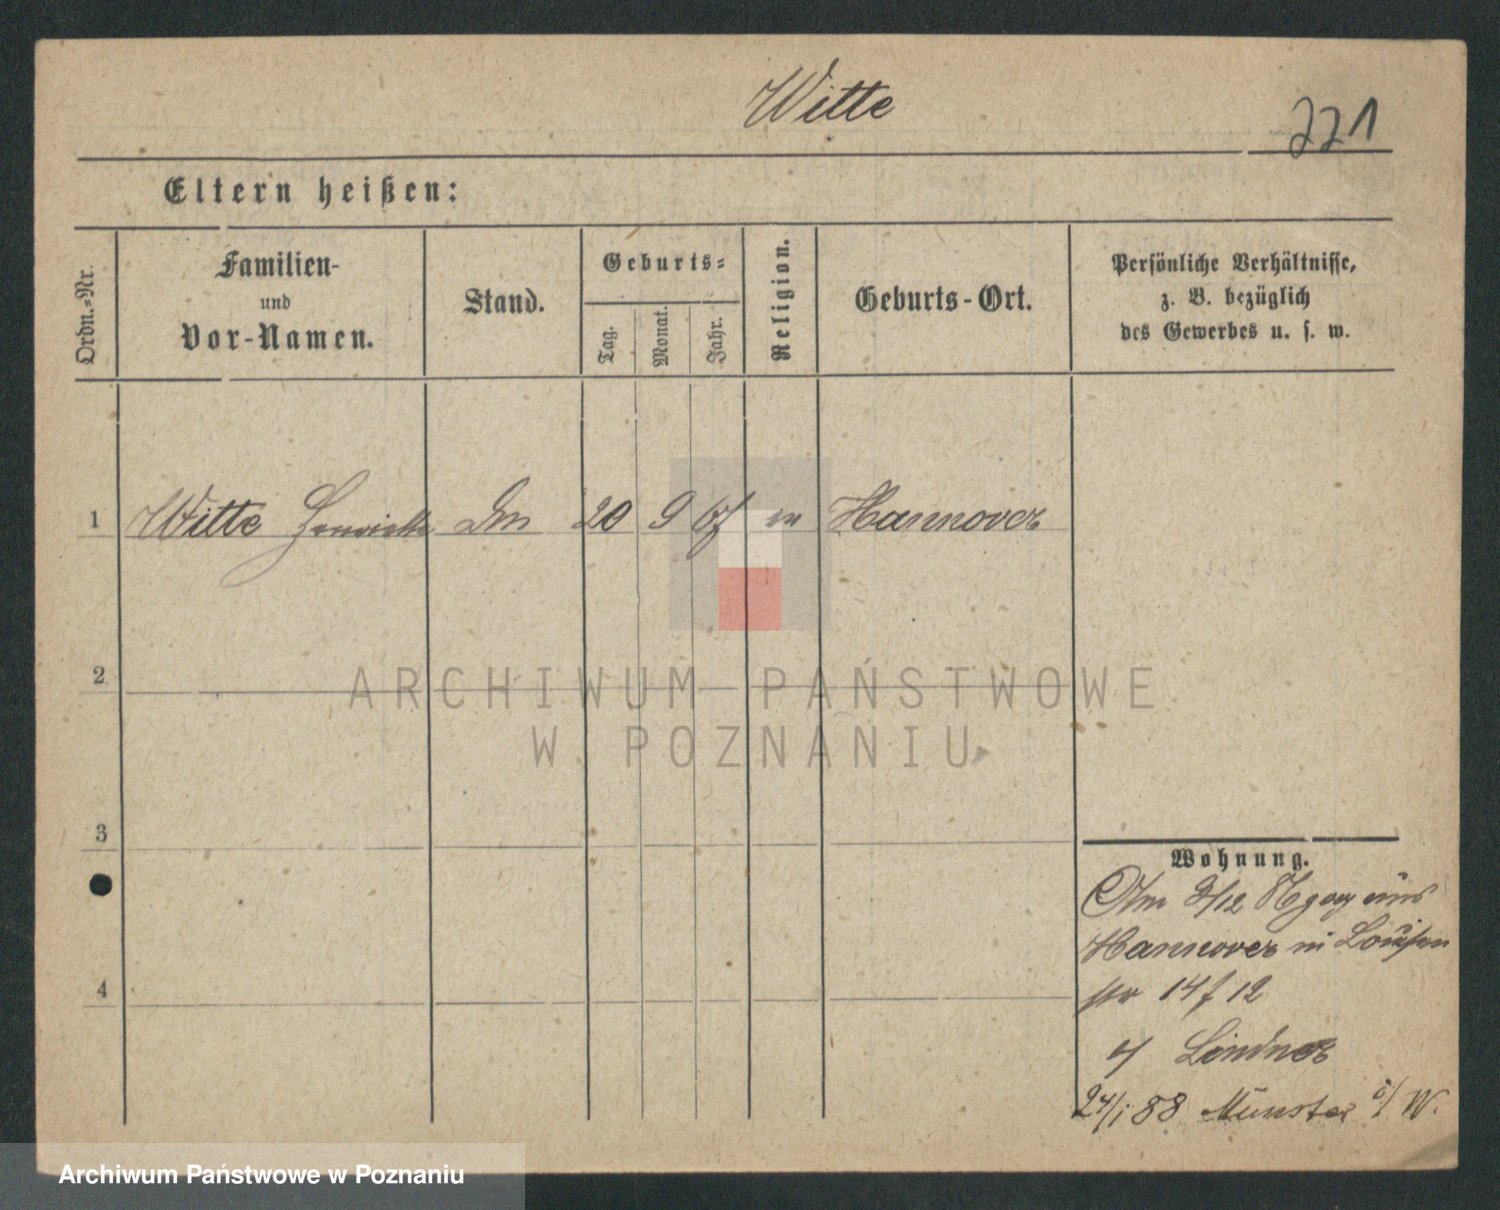 Witte
221
Eltern heißen:
Ordn.-Nr.
Familien-
und
Vor-Namen.
Stand.
Geburts-
Tag.
Monat.
Jahr.
Religion.
Geburts-Ort.
Persönliche Verhältnisse,
z. B. bezüglich
des Gewerbes u. s. w.
1 Witte Henriette 20 9 67 Hannover
2
3
4
Wohnung.
Am 3/12 aus
Hannover in Louisen
str 14 12
Lindner
24/1 88 Münster i/ W.
ARCHIWUM PAŃSTWOWE
W POZNANIU
Archiwum Państwowe w Poznaniu